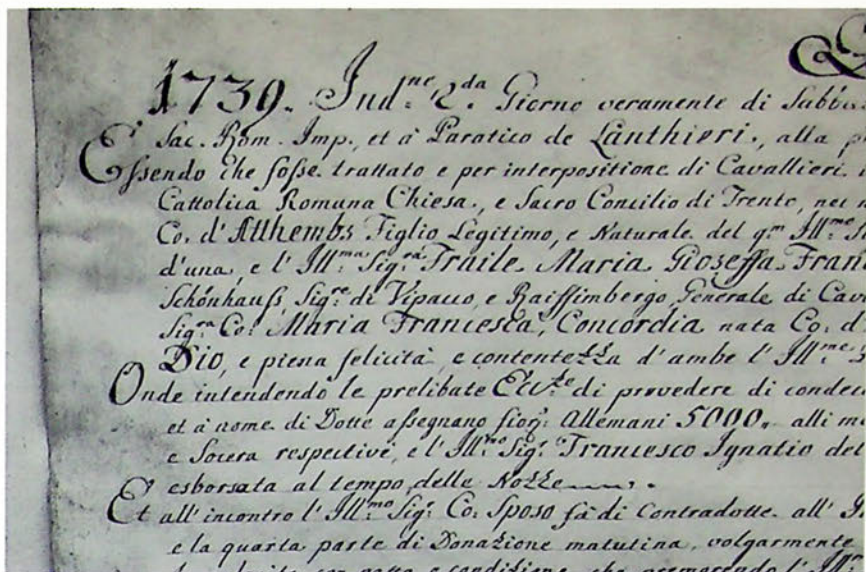 1739. Ind:ne 2.da Giorno veramente di Sabba
Sac. Rom. Imp., et à Paratico de Lanthieri., alla p
Essendo che fosse trattato e per interpositione di Cavallieri
Cattolica Romana Chiesa., e Sacro Concilio di Trento, nei
Co. d'Atthembs Figlio Legitimo, e Naturale del q.m Ill:mo
d'una, e l'Ill:ma Sig:ra Fraile Maria Gioseffa Fran
Schönhauss, Sig:re di Vipacco, e Raiffimbergo, Generale di Cav
Sig:ra Co: Maria Francesca, Concordia nata Co: d
Dio, e piena felicità, e contentezza d'ambe l'Ill:me
Onde intendendo le prelibate Ecc:ze di provedere di conde
et à nome di Dotte assegnano fior: Allemani 5000„ alli
e Socera respective, e l'Ill:mo Sig: Francesco Ignatio del
esborsata al tempo delle Nozze
Et all'incontro l'Ill:mo Sig: Co: Sposo fà di Contradotte all'
e la quarta parte di Donazione matutina, volgarmente
e condizione, che premorendo l'Ill: